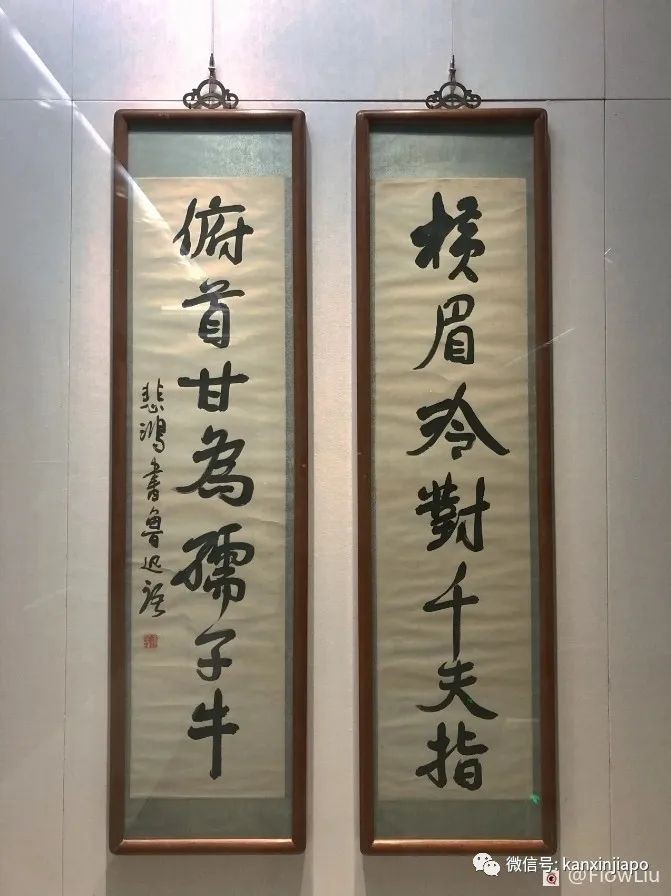 橫眉冷對千夫指
俯首甘為孺子牛
悲鴻書魯迅語
微信号: kanxinjiapo
@FlowLiu